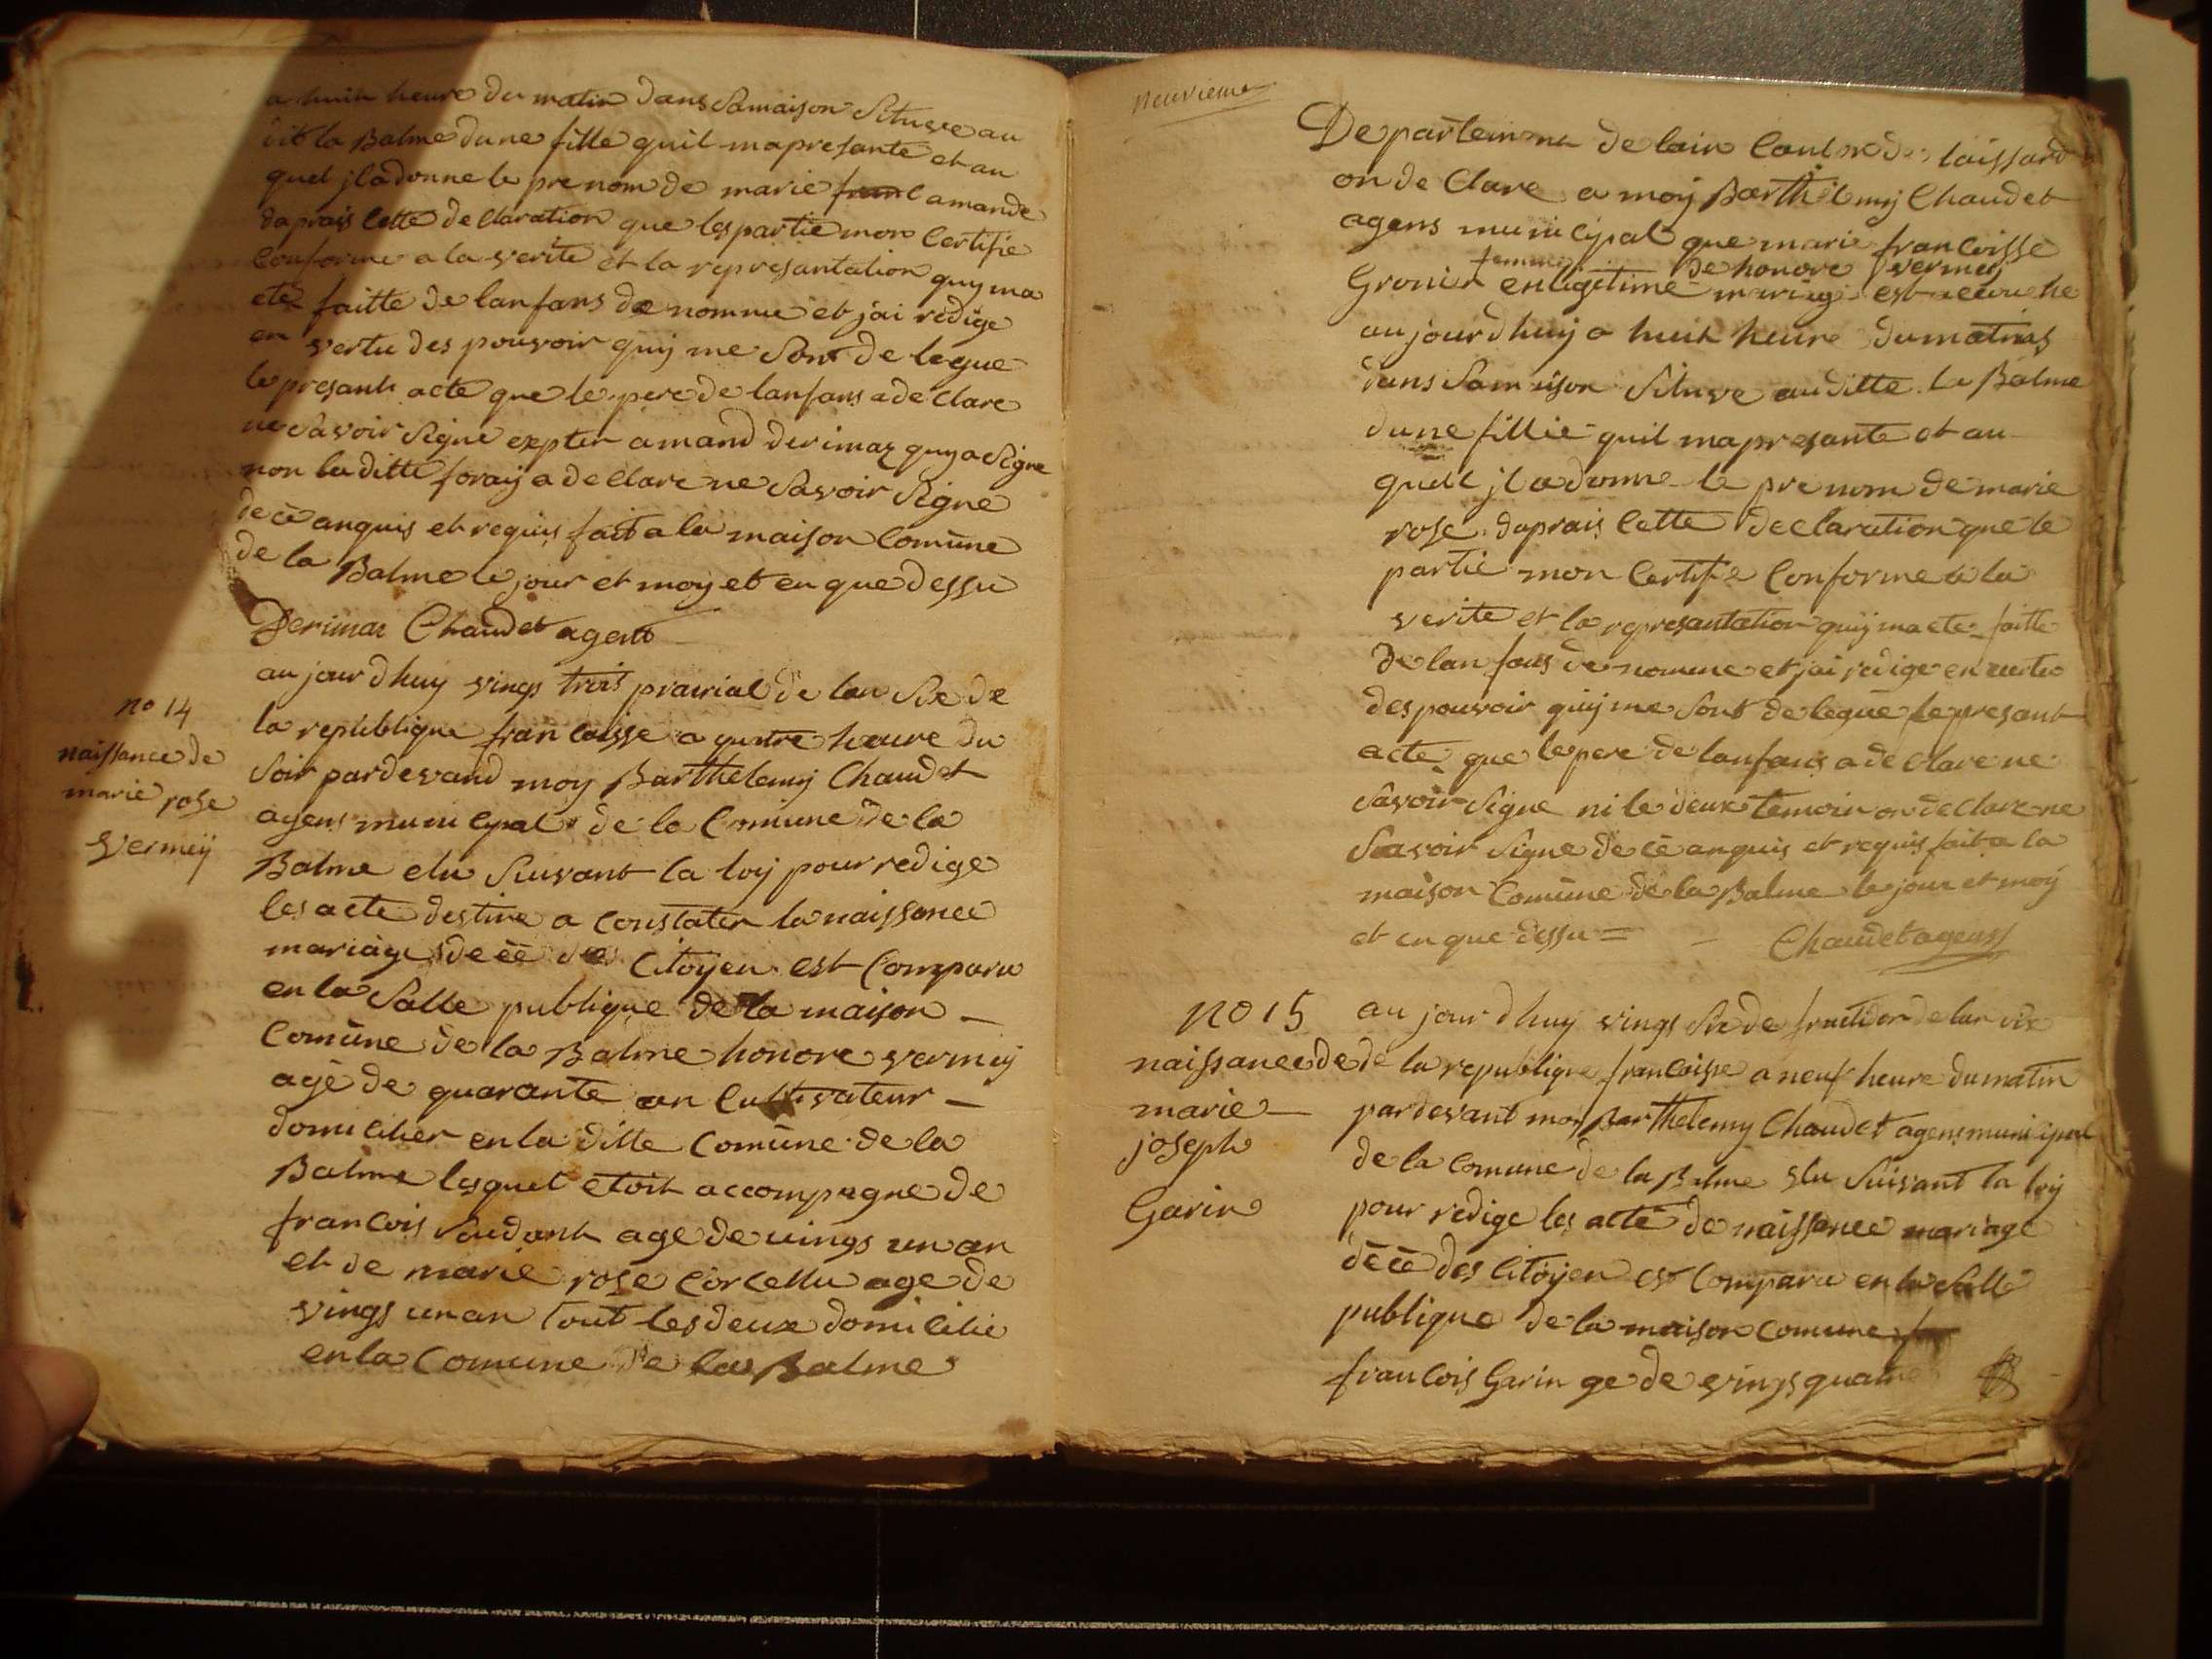 a huin heure du matin dans Samaison Situve au
dit la Balme dune fille quil mapresante et au
quel jladonne le prenom de marie franc amande
daprais Cette declaration que les partie mon Certifie
Conforme a la verite et la represantation quy ma
ete faitte de lanfans de nomme et jai redige
en vertu des pouvoir quy me Sont de legue
le presant acte que le pere de lanfans a de Clare
ne Savoir Signe expter amand derimaz quy a Signe
non laditte foraij a de Clare ne Savoir Signe
de ce anquis et requis fait a la maison Comune
de la Balme le jour et moy et en que dessu
Derimaz Chaudet agent
no 14
naissance de
marie rose
Vermeÿ
au jour dhuy vings trois prairial de lan Six de
la republique francoisse a quatre heure du
Soir pardevand moy Barthelemy Chaudet
agens municypal de la Comune de la
Balme elu Suivant la loy pour redige
les acte destine a Constater la naissance
mariage de ce des Citoyen est Comparu
en la Salle publique de la maison
Comune de la Balme honore vermey
age de quarante an Cultivateur
domicilier en la ditte Comune de la
Balme lesquel etoit accompagne de
francois Soudant age de vings un an
et de marie rose Corcellu age de
vings un an tout les deux domicilie
en la Comune de la Balme
neuvieme
Departemen de lain Canton de laissard
on de Clare a moy Barthelemy Chaudet
agens municypal que marie francoisse
femme de honore vermey
Gronier en legitime mariage est acouche
au jour dhuy a huit heure du matins
dans Samaison Situve au ditte la Balme
dune fillie quil mapresante et au
quell jl a donne le pre nom de marie
rose daprais Cette declaration que le
partie mon Certifie Conforme a la
verite et la represantation quij ma ete faitte
de lanfans de nomme et jai redige en vertu
des pouvoir quij me Sont de legue le presant
acte que le pere de lanfans a de Clare ne
Savoir Signe ni le deux temoin on de Clare ne
Savoir Signe de ce anquis et requis fait a la
maison Comune de la Balme le jour et moy
et en que dessu = Chaudet agens
no 15
naissance de
marie
joseph
Garin
au jour dhuy vings Six de fructidor de lan six
de la republique francoisse a neuf heure du matin
pardevant moy Barthelemy Chaudet agens municipal
de la Comune de la Balme elu Suivant la loy
pour redige les acte de naissance mariage
dece des Citoyen est Comparu en la Salle
publique de la maison Comune
francois Garin ge de vings quatre